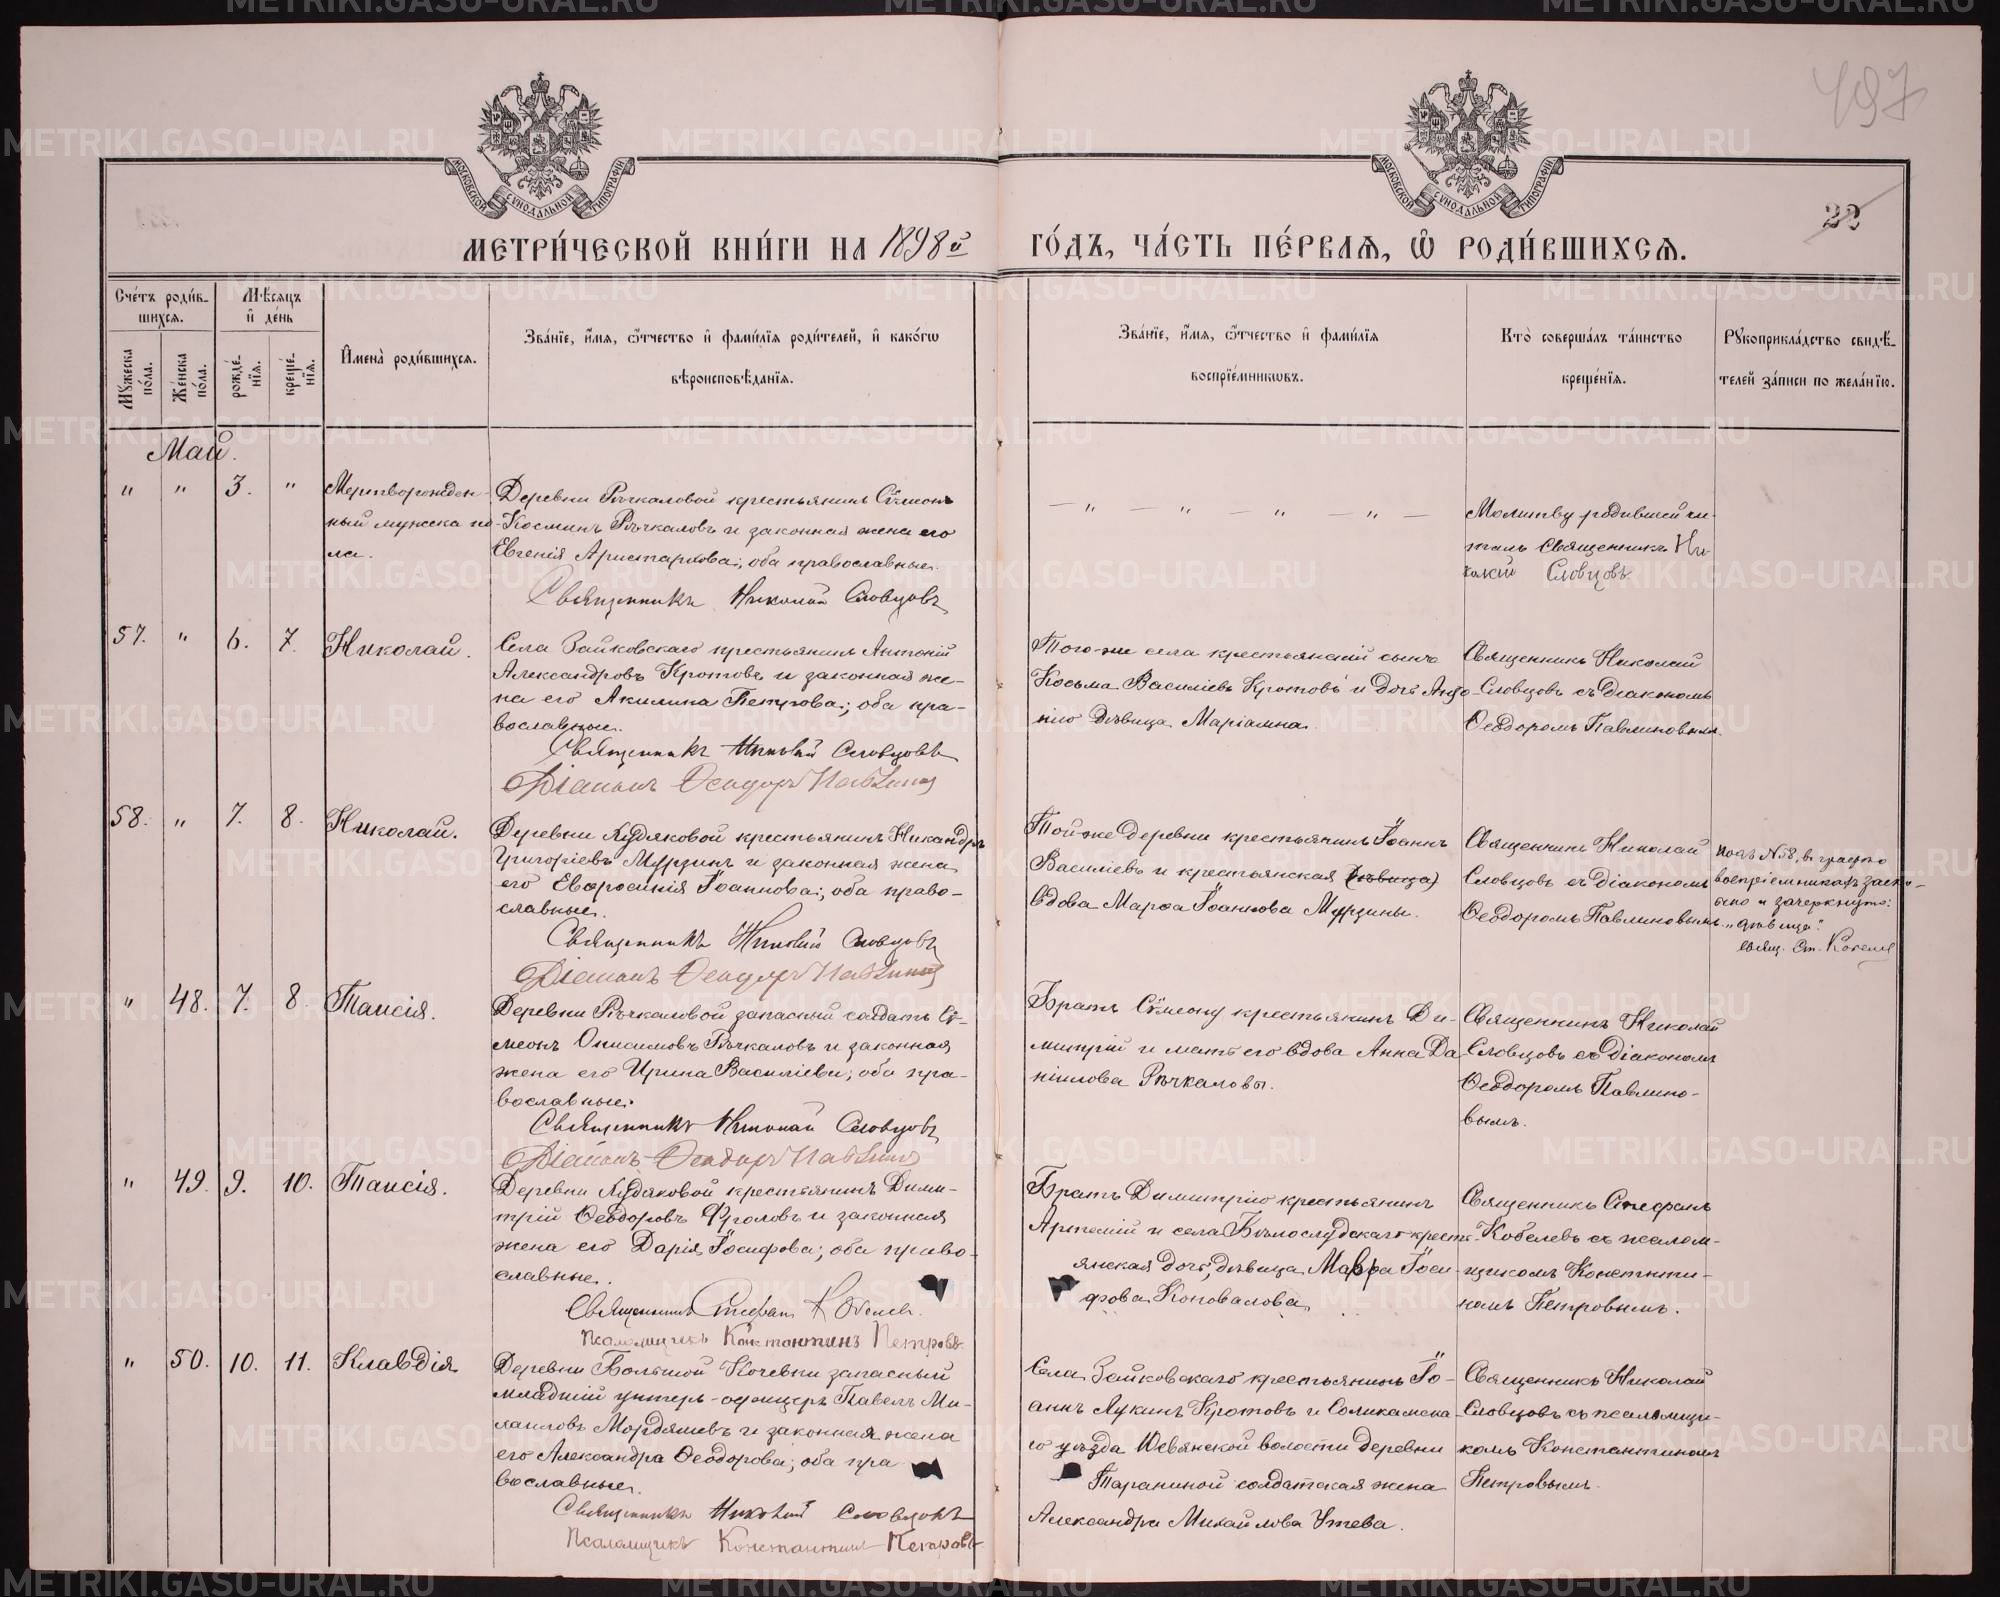 497
22
МОСКОВСКОЙ СУНОДАЛЬНОЙ ТИПОГРАФІИ
МОСКОВСКОЙ СУНОДАЛЬНОЙ ТИПОГРАФІИ
МЕТРИ́ЧЕСКОЙ КНИ́ГИ НА 1898й ГО́ДЪ, ЧА́СТЬ ПЕ́РВАЯ, Ѡ РОДИ́ВШИХСЯ.
Сче́тъ роди́в-
шихся.
Мѣсяцъ
и де́нь
Мужеска по́ла.
Же́нска по́ла.
рожде́нїя.
креще́нїя.
Имена̀ роди́вшихся.
Зва́нїе, и́мя, ѻ́тчество и фами́лїя роди́телей, и како́гѡ
вѣроисповѣ́данїя.
Зва́нїе, и́мя, ѻ́тчество и фами́лїя
воспрїе́мникѡвъ.
Кто̀ соверша́лъ та́инство
креще́нїя.
Рукоприкла́дство свидѣ́-
телей за́писи по жела́нїю.
Май.
" " 3. "
Мертворожден-
ный мужска по-
ла.
Деревни Рѣчкаловой крестьянинъ Сѵмеонъ
Косминъ Рѣчкаловъ и законная жена его
Евгенія Аристархова; оба православные.
Священникъ Николай Словцовъ
— " — " — " — " —
Молитву родившей чи-
талъ Священникъ Ни-
колай Словцовъ.
57. " 6. 7. Николай.
Села Зайковскаго крестьянинъ Антоній
Александровъ Кротовъ и законная же-
на его Акилина Петрова; оба пра-
вославные.
Священникъ Николай Словцовъ
Діаконъ Ѳеодоръ Павлинов
Того-же села крестьянскій сынъ
Косьма Василіевъ Кротовъ и дочь Анто-
нію дѣвица Маріамна.
Священникъ Николай
Словцовъ съ діакономъ
Ѳеодоромъ Павлиновымъ.
58. " 7. 8. Николай.
Деревни Лудяковой крестьянинъ Никандръ
Григоріевъ Мурзинъ и законная жена
его Евфросинія Іоаннова; оба право-
славные.
Священникъ Николай Словцовъ
Діаконъ Ѳеодоръ Павлинов
Той-же деревни крестьянинъ Іоаннъ
Василіевъ и крестьянская (дѣвица)
вдова Марфа Іоаннова Мурзины.
Священникъ Николай
Словцовъ съ діакономъ
Ѳеодоромъ Павлиновымъ.
подъ №58, въ графѣ о
воспріемникахъ заско-
блено и зачеркнуто:
"дѣвица".
свящ. Ст. Кобелев
" 48. 7. 8. Таисія.
Деревни Рѣчкаловой запасный солдатъ Сѵ-
меонъ Онисимовъ Рѣчкаловъ и законная
жена его Ирина Василіева; оба пра-
вославные.
Священникъ Николай Словцовъ
Діаконъ Ѳеодоръ Павлинов
Братъ Сѵмеону крестьянинъ Ди-
митрій и мать его вдова Анна Да-
ніилова Рѣчкаловы.
Священникъ Николай
Словцовъ съ діакономъ
Ѳеодоромъ Павлино-
вымъ.
" 49. 9. 10. Таисія.
Деревни Лудяковой крестьянинъ Дими-
трій Ѳеодоровъ Фроловъ и законная
жена его Дарія Іосифова; оба право-
славные.
Священникъ Стефанъ Кобелев.
Псаломщикъ Константинъ Петровъ
Братъ Димитрію крестьянинъ
Артемій и села Бѣлослудскаго кресть-
янская дочь, дѣвица Мавра Іоси-
фова Коновалова.
Священникъ Стефанъ
Кобелевъ съ псалом-
щикомъ Константи-
номъ Петровымъ.
" 50. 10. 11. Клавдія
Деревни Большой Кочевки запасный
младшій унтеръ-офицеръ Павелъ Ми-
хаиловъ Мордяшевъ и законная жена
его Александра Ѳеодорова; оба пра
вославные.
Священникъ Николай Словцовъ
Псаломщикъ Константинъ Петровъ
Села Зайковскаго крестьянинъ Іо-
аннъ Лукинъ Кротовъ и Соликамска-
го уѣзда Юсвянской волости деревни
Тараниной солдатская жена
Александра Михайлова Утева.
Священникъ Николай
Словцовъ съ псаломщи-
комъ Константиномъ
Петровымъ.